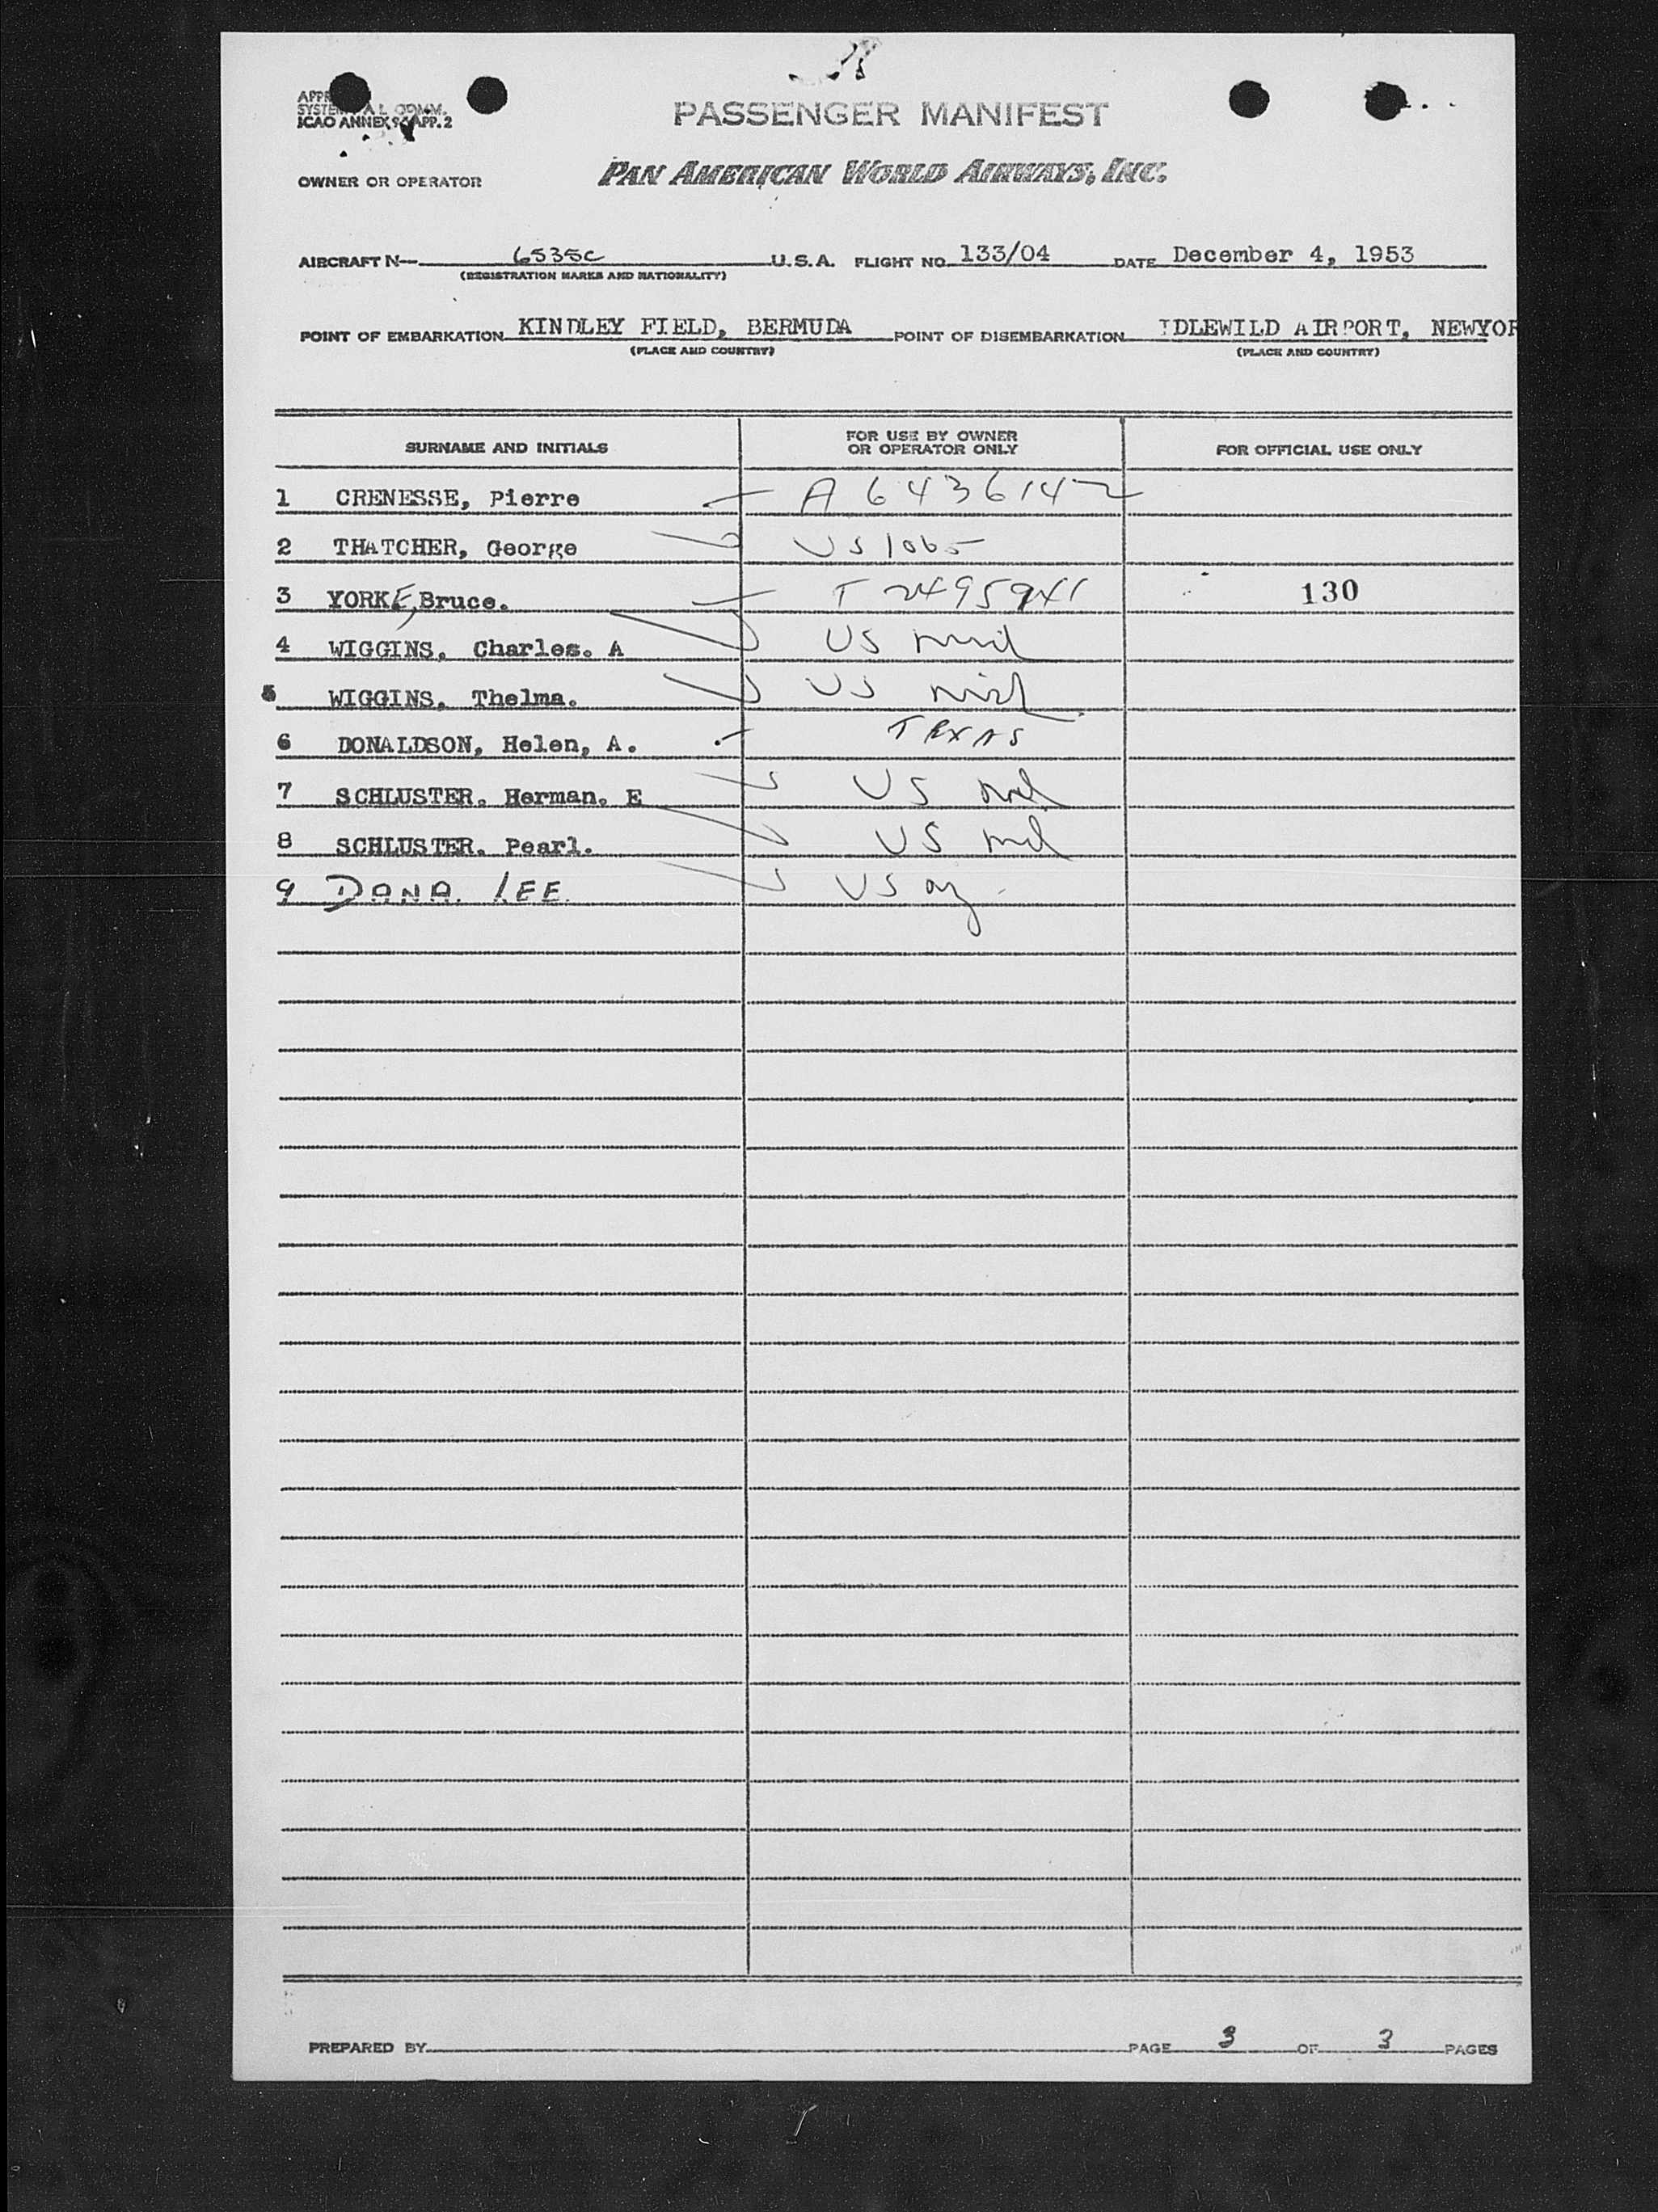 PASSENGER MANIFEST
SYSTEM
ICAO ANNEX 9, APP. 2
OWNER OR OPERATOR PAN AMERICAN WORLD AIRWAYS, INC.
AIRCRAFT N— 6535C U.S.A. FLIGHT NO. 133/04 DATE December 4, 1953
(REGISTRATION MARKS AND NATIONALITY)
POINT OF EMBARKATION KINDLEY FIELD, BERMUDA POINT OF DISEMBARKATION IDLEWILD AIRPORT, NEWYOR
(PLACE AND COUNTRY) (PLACE AND COUNTRY)
SURNAME AND INITIALS FOR USE BY OWNER OR OPERATOR ONLY FOR OFFICIAL USE ONLY
1 CRENESSE, Pierre A 6436142
2 THATCHER, George US
3 YORKE, Bruce. T 130
4 WIGGINS, Charles. A US
5 WIGGINS, Thelma. US
6 DONALDSON, Helen, A. TEXAS
7 SCHLUSTER. Herman. E US
8 SCHLUSTER. Pearl. US
9 DANA. LEE. US
PREPARED BY PAGE 3 OF 3 PAGES